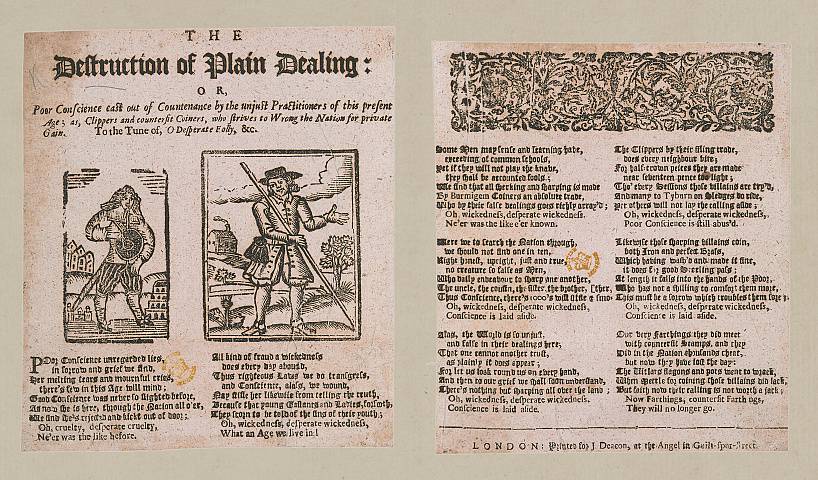 THE
Destruction of Plain Dealing:
OR,
Poor Conscience cast out of Countenance by the unjust Practitioners of this present
Age; as, Clippers and counterfit Coiners, who strives to Wrong the Nation for private
Gain. To the Tune of, O Desperate Folly, &c.
POor Conscience unregarded lies,
in sorrow and grief we find,
Her melting tears and mournful cries,
there's few in this Age will mind;
Good Conscience was never so slighted before,
As now she is here, through the Nation all o'er,
We find she's rejected and kickt out of door;
Oh, cruelty, desperate cruelty,
Ne'er was the like before.
All kind of fraud a wickedness
does every day abound,
Thus righteous Laws we do transgress,
and Conscience, alass, we wound,
Nay stifle her likewise from telling the truth,
Because that young Gallants and Ladies, forsooth,
They scorn to be told of the sins of their youth;
Oh, wickedness, desperate wickedness,
What an Age we live in!
Some Men may sense and learning have,
exceeding of common schools,
Yet if they will not play the knave,
they shall be accounted fools;
We find that all sherking and sharping is made
By Burmigem Coiners an absolute trade,
Who by their false dealings goes richly array'd;
Oh, wickedness, desperate wickedness.
Ne'er was the like e'er known.
Were we to search the Nation through,
we should not find one in ten,
Right honest, upright, just and true,
no creature so false as Men,
Who daily endeavour to sharp one another,
The uncle, the cousin, the sister, the brother, [ther,
Thus Conscience, there's 1000's will stifle & smo-
Oh, wickedness, desperate wickedness,
Conscience is laid aside.
Alas, the World is so unjust,
and false in their dealings here,
That one cannot another trust,
as plainly it does appear;
For let us look round us on every hand,
And then to our grief we shall soon understand,
There's nothing but sharping all over the land;
Oh, wickedness, desperate wickedness,
Conscience is laid aside.
The Clippers by their filing trade,
does every neighbour bite;
For half-crown peices they are made
near seventeen pence too light;
Tho' every Sessions those villains are try'd,
And many to Tyburn on Sledges do ride,
Yet others will not lay the calling aside;
Oh, wickedness, desperate wickedness,
Poor Conscience is still abus'd.
Likewise those sharping villains coin,
both Iron and perfect Brass,
Which having wash'd and made it fine,
it does for good Sterling pass;
At length it falls into the hands of the Poor,
Who has not a shilling to comfort them more,
This must be a sorrow which troubles them sore
Oh, wickedness, desperate wickedness,
Conscience is laid aside.
Our very Farthings they did meet
with counterfit Stamps, and they
Did in the Nation thousands cheat,
but now they have lost the day:
The Tinkers flagons and pots went to wrack,
When mettle for coining those villains did lack,
But faith now their calling is not worth a jack;
Now Farthings, counterfit Farthings,
They will no longer go.
LONDON: Printed for J. Deacon, at the Angel in Guilt-spur-street.